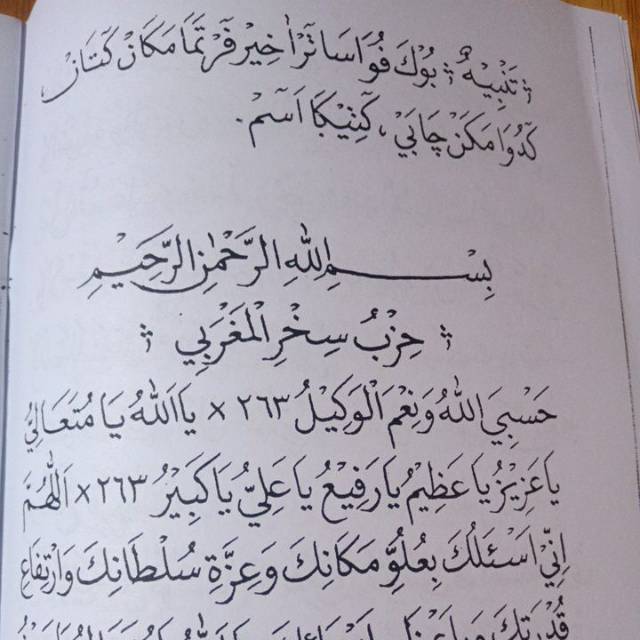 ؛ تَنْبِيْهٌ ؛ بُوْكَ فُوَاسَا تَرْاٰخِيْر فَرْتَمَا مَكَانْ كَتَانْ
كَدُوَا مَكَنْ چَابَيْ ، كَتِيْكَا اَسَمْ .
بِسْـــمِ اللهِ الرَّحْمٰنِ الرَّحِيْمِ
؛ حِزْبُ سِخْرِ الْمَغْرَبِي ؛
حَسْبِيَ اللهُ وَنِعْمَ الْوَكِيْلُ ٢٦٣ × يَااَللهُ يَا مُتَعَالِيُ
يَاعَزِيْزُ يَا عَظِيْمُ يَارَفِيْعُ يَاعَلِيُّ يَاكَبِيْرُ ٢٦٣ × اَللّٰهُمَّ
اِنِّيْ اَسْئَلُكَ بِعُلُوِّ مَكَانِكَ وَعِزَّةِ سُلْطَانِكَ وَارْتِفَاعِ
قُدْرَتِكَ